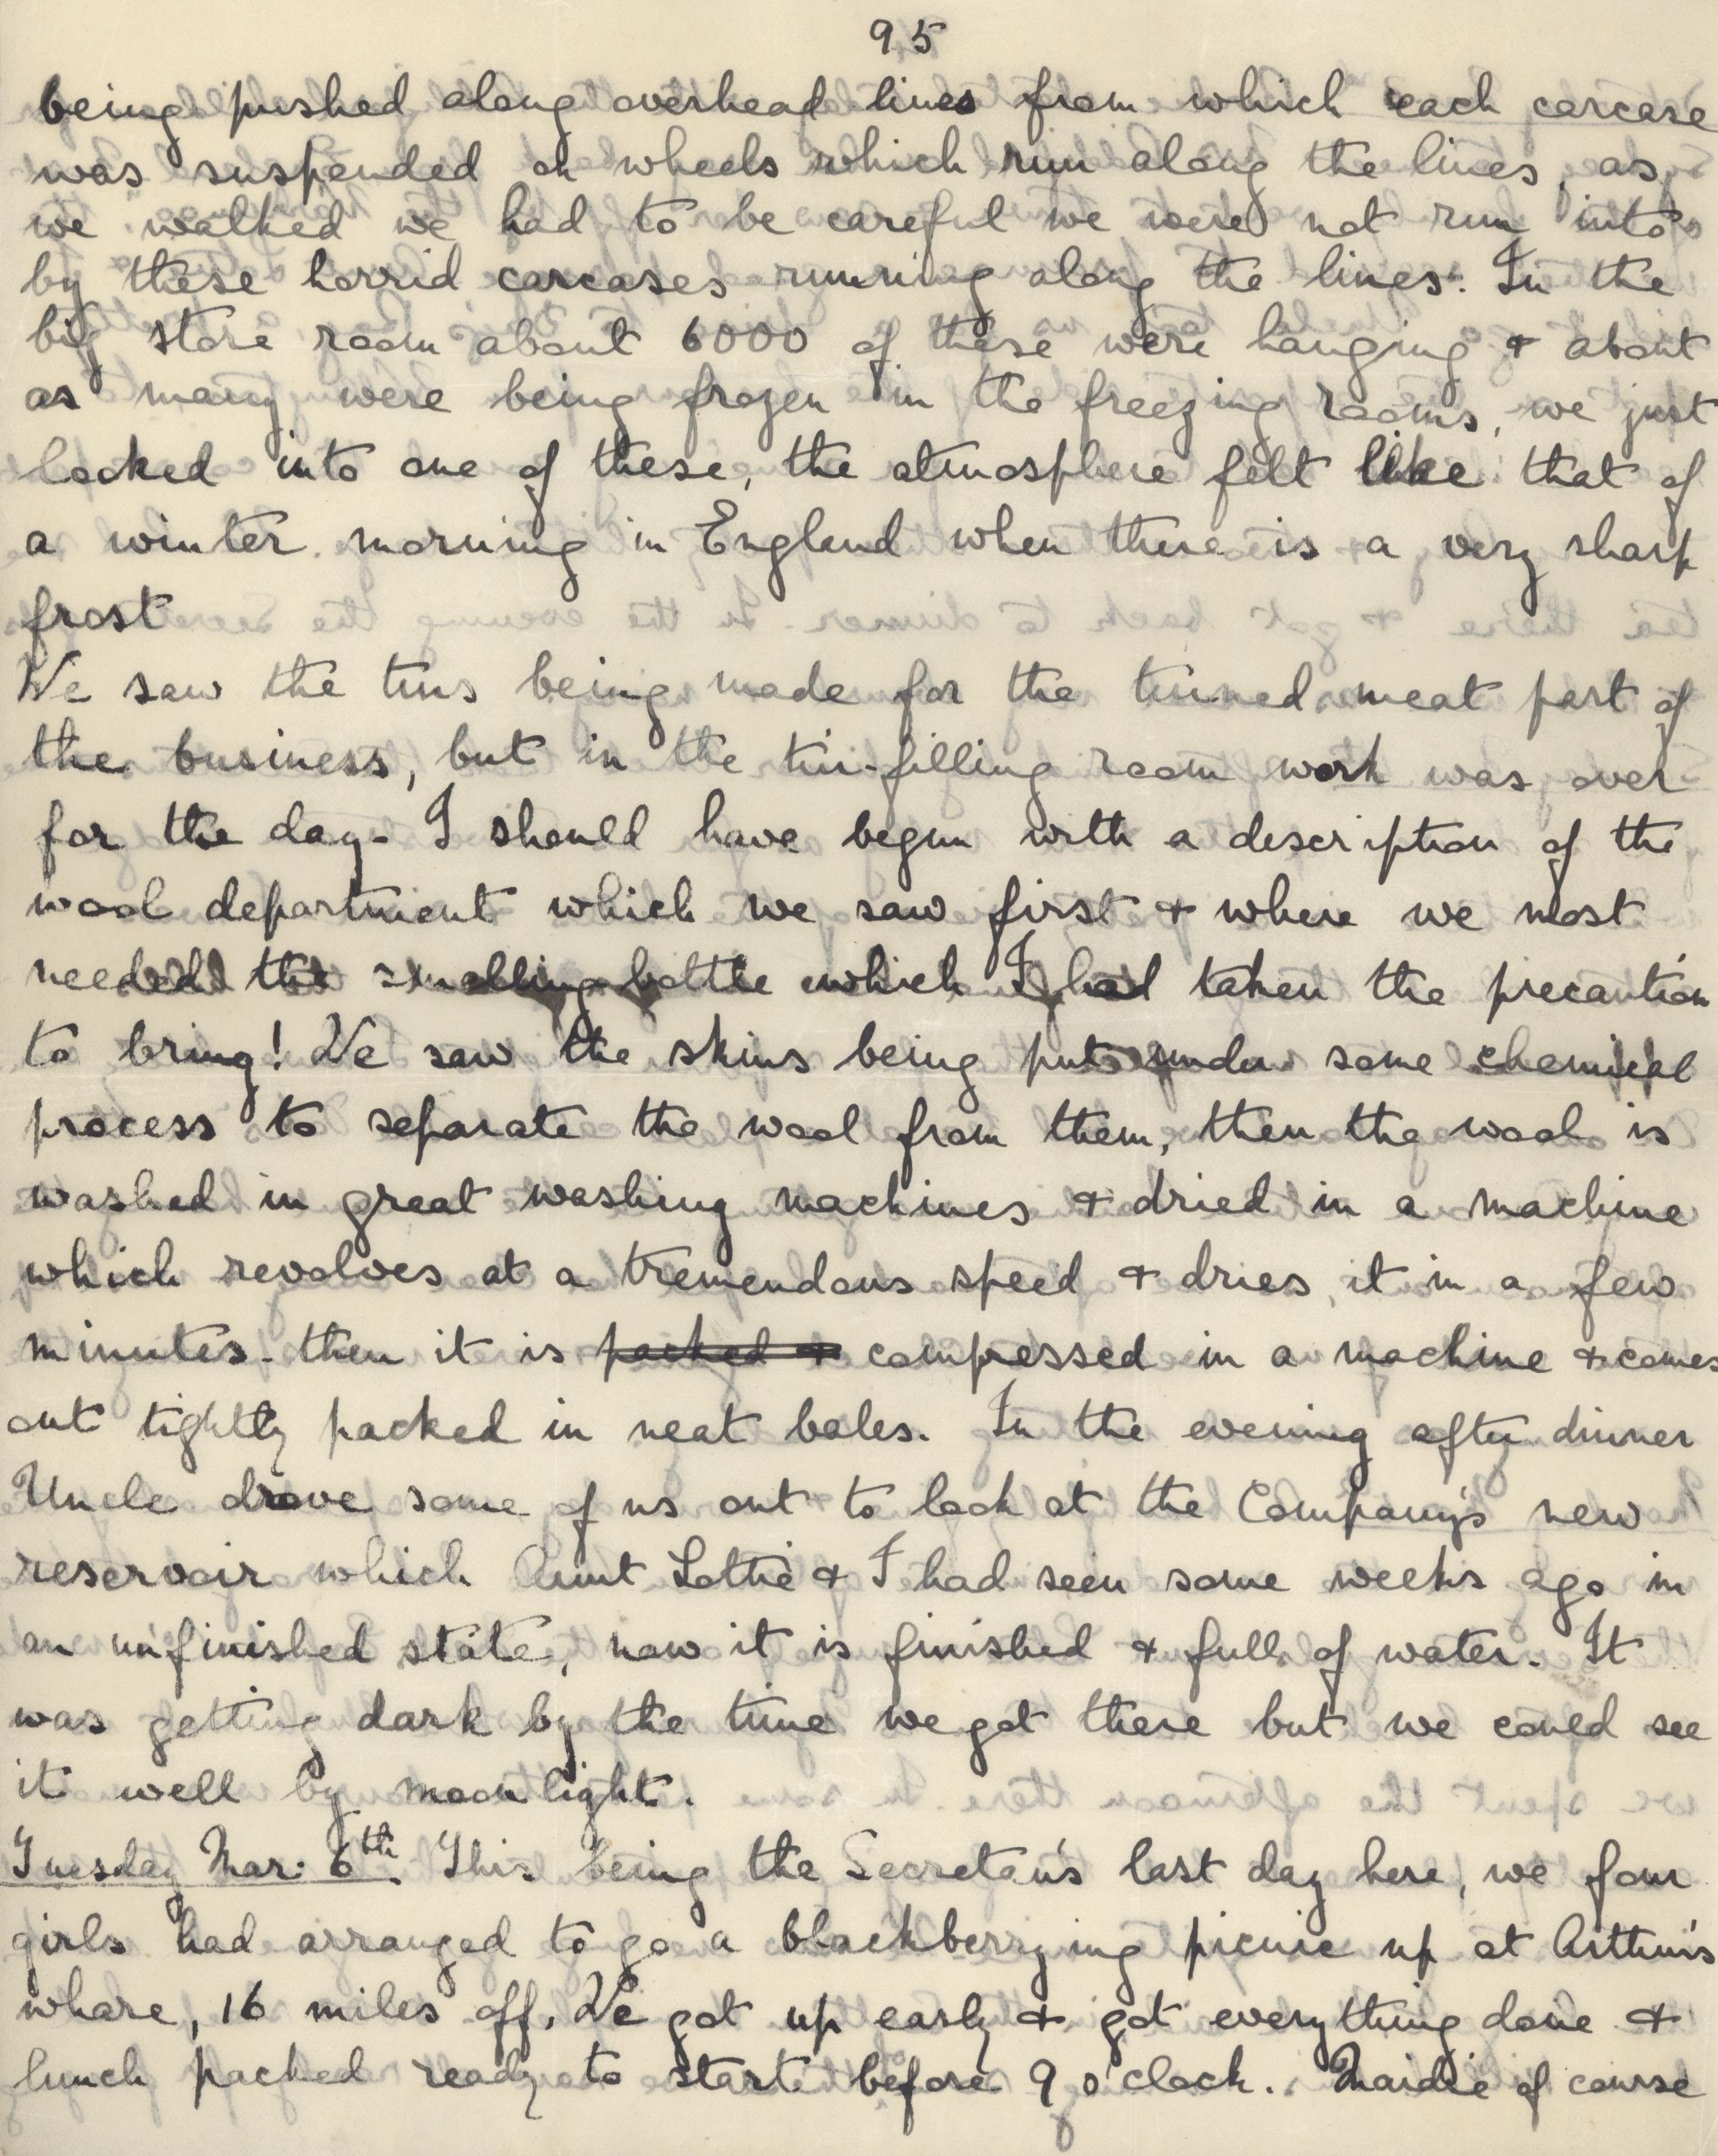 95
being pushed along overhead lines from which each carcase
was suspended on wheels which run along the lines, as
we walked we had to be careful we were not run into
by these horrid carcases running along the lines. In the
big store room about 6000 of these were hanging & about
as many were being frozen in the freezing rooms, we just
looked into one of these, the atmosphere felt like that of
a winter morning in England when there is a very sharp
frost
We saw the tins being made for the tinned meat part of
the business, but in the tin-filling room work was over
for the day. I should have begun with a description of the
wool department which we saw first & where we most
needed the smelling-bottle which I had taken the precaution
to bring! We saw the skins being put under some chemical
process to separate the wool from them, then the wool is
washed in great washing machines & dried in a machine
which revolves at a tremendous speed & dries it in a few
minutes. then it is packed & compressed in a machine & comes
out tightly packed in neat bales. In the evening after dinner
Uncle drove some of us out to look at the Company's new
reservoir which Aunt Lottie & I had seen some weeks ago in
an unfinished state, now it is finished & full of water. It
was getting dark by the time we got there but we could see
it well by moonlight.
Tuesday Mar: 6th. This being the Secretan's last day here, we four
girls had arranged to go a blackberrying picnic up at Arthur's
whare, 16 miles off. We got up early & got everything done &
lunch packed ready to start before 9 o'clock. Maidie of course